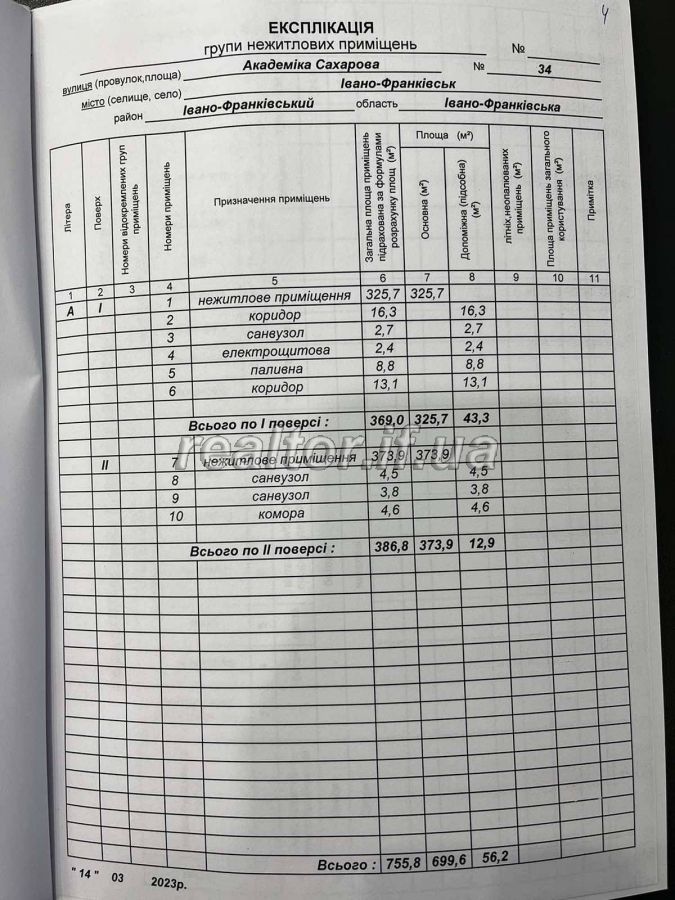 4
ЕКСПЛІКАЦІЯ
групи нежитлових приміщень №
вулиця (провулок,площа) Академіка Сахарова № 34
місто (селище, село) Івано-Франківськ
район Івано-Франківський область Івано-Франківська
Літера
Поверх
Номери відокремлених груп приміщень
Номери приміщень
Призначення приміщень
Загальна площа приміщень підрахована за формулами розрахунку площ (м²)
Площа (м²)
Основна (м²)
Допоміжна (підсобна) (м²)
літніх,неопалюваних приміщень (м²)
Площа приміщень загального користування (м²)
Примітка
1 2 3 4 5 6 7 8 9 10 11
А І 1 нежитлове приміщення 325,7 325,7
2 коридор 16,3 16,3
3 санвузол 2,7 2,7
4 електрощитова 2,4 2,4
5 паливна 8,8 8,8
6 коридор 13,1 13,1
Всього по І поверсі : 369,0 325,7 43,3
realtor.if.ua
ІІ 7 нежитлове приміщення 373,9 373,9
8 санвузол 4,5 4,5
9 санвузол 3,8 3,8
10 комора 4,6 4,6
Всього по ІІ поверсі : 386,8 373,9 12,9
Всього : 755,8 699,6 56,2
" 14 " 03 2023р.